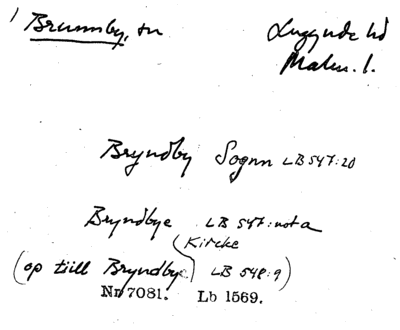 Brunnby, sn
Luggude hd
Malm. l.
Bryndby Sognn LB 547:20
Bryndbye LB 547:nota
Kircke
(op tiill Bryndbye LB 548:9)
Nr 7081. Lb 1569.